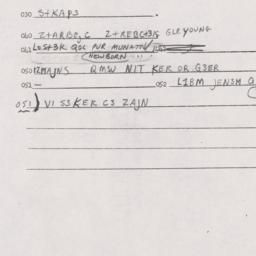 030 S+KAPS
040 Z+ARBE,C Z+REBC+3K GLRYOUNG
042 LOST3K QOC PVR MUNATN
NEWBORN
050 12MAJNS QMSW NIT KER OR G3ER
052 — 052 L1BM JENSM Q
051) VI S3 KER C3 ZAJN